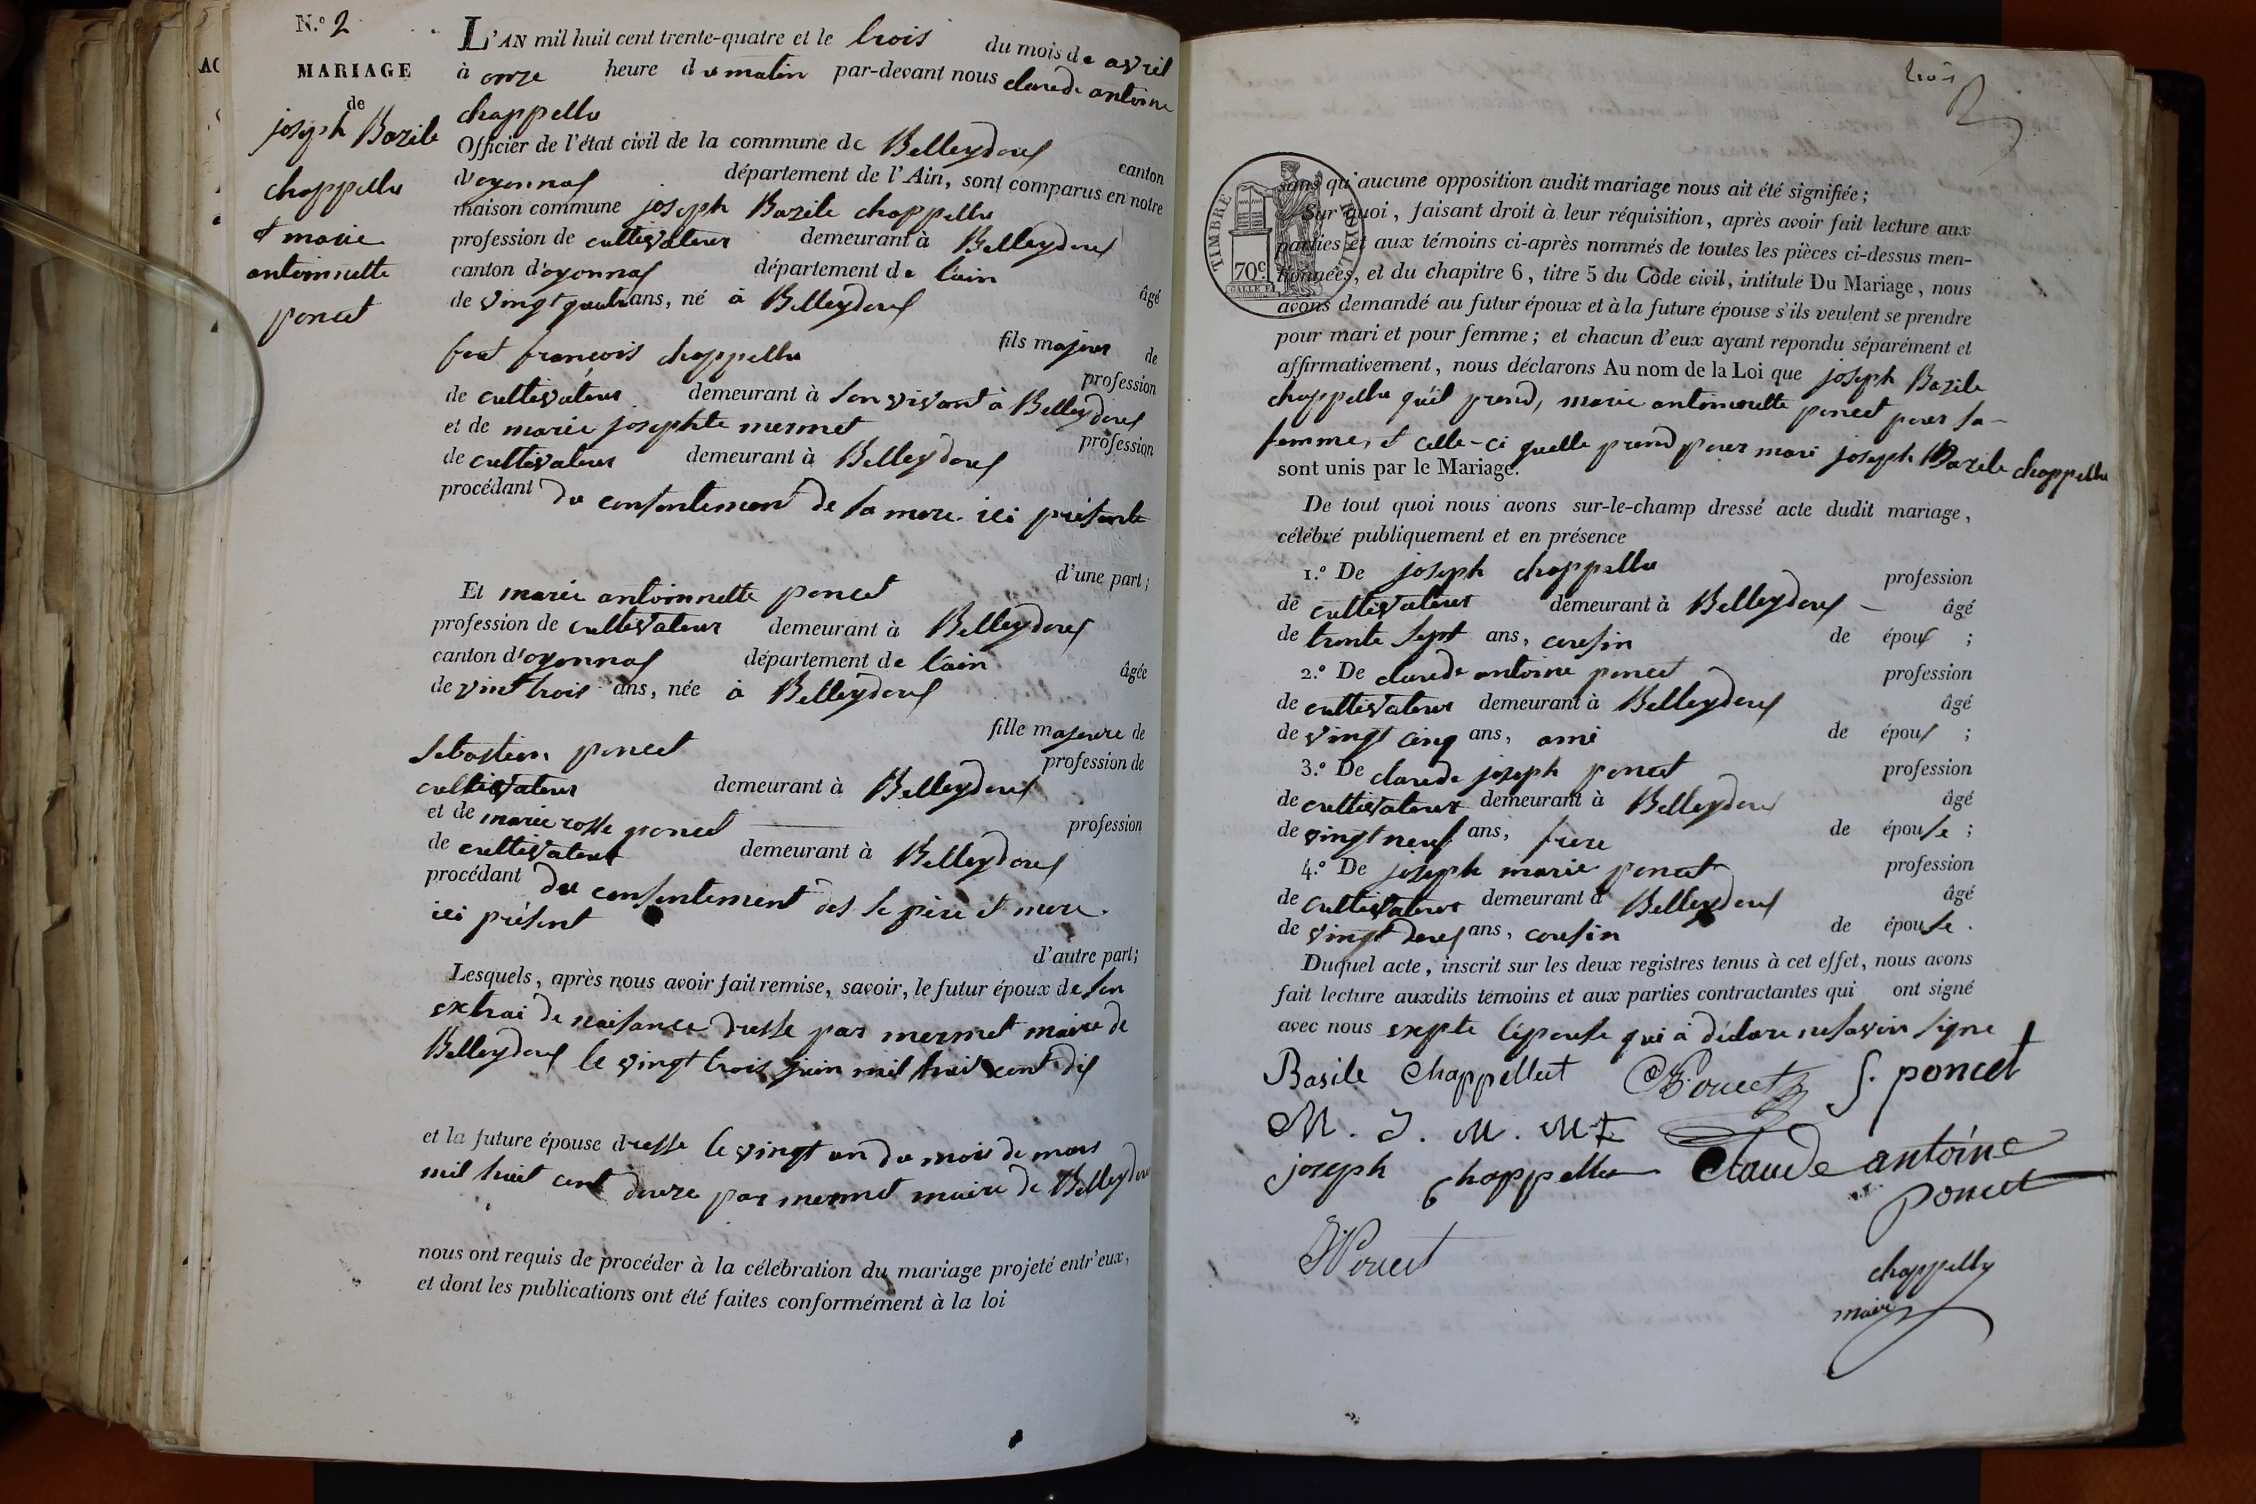 N.º 2
MARIAGE
de
joseph Bazile
chappellu
et marie
antoinnette
poncet
L'AN mil huit cent trente-quatre et le trois du mois de avril
à onze heure du matin par-devant nous claude antoine
chappellu
Officier de l'état civil de la commune de Belleydoux canton
d'oyonnax département de l'Ain, sont comparus en notre
maison commune joseph Bazile chappellu
profession de cultivateur demeurant à Belleydoux
canton d'oyonnax département de l'ain âgé
de vingt quatre ans, né à Belleydoux
fils majeur de
feut françois chappellu profession
de cultivateur demeurant à son vivant à Belleydoux
et de marie josephte mermet profession
de cultivateur demeurant à Belleydoux
procédant du consentement de sa mere ici présente
d'une part;
Et marie antoinnette poncet
profession de cultivateur demeurant à Belleydoux
canton d'oyonnax département de l'ain âgée
de vint trois ans, née à Belleydoux
fille majeure de
sebastien poncet profession de
cultivateur demeurant à Belleydoux
et de marie rosse poncet profession
de cultivateur demeurant à Belleydoux
procédant du consentement des se père et mere
ici présent
d'autre part;
Lesquels, après nous avoir fait remise, savoir, le futur époux de son
extrai de naisance dresse par mermet maire de
Belleydoux le vingt trois juin mil huit cent dix
et la future épouse dresse le vingt un du mois de mars
mil huit cent douze par mermet maire de Belleydoux
nous ont requis de procéder à la célébration du mariage projeté entr'eux,
et dont les publications ont été faites conformément à la loi
trois
TIMBRE ROYAL
70c
sans qu'aucune opposition audit mariage nous ait été signifiée;
Sur quoi, faisant droit à leur réquisition, après avoir fait lecture aux
parties et aux témoins ci-après nommés de toutes les pièces ci-dessus men-
tionnées, et du chapitre 6, titre 5 du Code civil, intitulé Du Mariage, nous
avons demandé au futur époux et à la future épouse s'ils veulent se prendre
pour mari et pour femme; et chacun d'eux ayant repondu séparément et
affirmativement, nous déclarons Au nom de la Loi que joseph Bazile
chappellu qu'il prend, marie antoinnette poncet pour sa
femme, et celle-ci quelle prend pour mari joseph Bazile chappellu
sont unis par le Mariage.
De tout quoi nous avons sur-le-champ dressé acte dudit mariage,
célébré publiquement et en présence
1.º De joseph chappellu profession
de cultivateur demeurant à Belleydoux âgé
de trente sept ans, cousin de époux ;
2.º De claude antoine poncet profession
de cultivateur demeurant à Belleydoux âgé
de vingt cinq ans, ami de époux ;
3.º De claude joseph poncet profession
de cultivateur demeurant à Belleydoux âgé
de vingt neuf ans, frere de épouse ;
4.º De joseph marie poncet profession
de cultivateur demeurant à Belleydoux âgé
de vingt deux ans, cousin de épouse .
Duquel acte, inscrit sur les deux registres tenus à cet effet, nous avons
fait lecture auxdits témoins et aux parties contractantes qui ont signé
avec nous exepte l'épouse qui à déclare ne savoir signe
Basile Chappellut Poncet S. poncet
M. J. M. Mt
joseph chappellu Claude antoine
poncet
Poncet
chappellu
maire